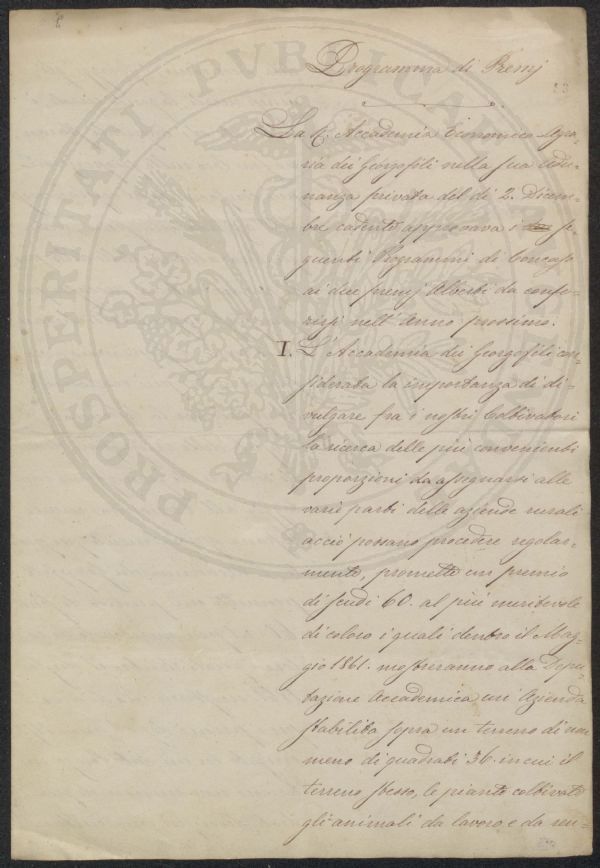 Programma di Premj
23
La R. Accademia Economico Agra-
ria dei Georgofili nella sua Adu-
nanza privata del dì 2. Dicem-
bre cadente approvava i se-
guenti Programmi di Concorso
ai due premj Alberti da confe-
rirsi nell'Anno prossimo.
I. L'Accademia dei Georgofili con-
siderata la importanza di di-
vulgare fra i nostri Coltivatori
la ricerca delle più convenienti
proporzioni da assegnarsi alle
varie parti delle aziende rurali
acciò possano procedere regolar-
mente, promette un premio
di Scudi 60. al più meritevole
di coloro i quali dentro il Mag-
gio 1861. mostreranno alla Depu-
tazione Accademica un'Azienda
stabilita sopra un terreno di non
meno di quadrati 36. in cui il
terreno stesso, le piante coltivate
gli animali da lavoro e da ren-
PROSPERITATI PVBLICAE